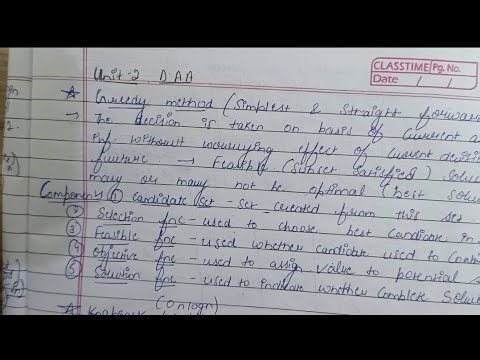 CLASSTIME Pg. No.
Date / /
Unit-2 DAA
Greedy method (Simplest & Straight forward
→ The decision is taken on basis of current a
inf. without worrying effect of current decisi
future → Feasible (subset satisfied) solu
may or may not be optimal (best solu
Components ① Candidate set - set created from this set
② Selection fnc - used to choose best candidate in
③ Feasible fnc - used whether candidate used to cont
④ Objective fnc - used to assign value to potential s
⑤ Solution fnc used to indicate whether complete solu
(O nlogn)